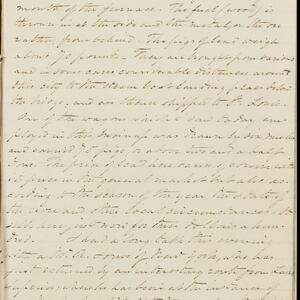 mouth of the furnace. The fuel (wood) is
thrown in at the side and the metal or the ore
rather, from behind. The pigs of lead weigh
about 70 pounds. They are brought from various
and in some cases considerable distances around
this city to the steam boat landing places below
the bridge, and are thence shipped to St. Louis.
One of the wagons which I saw to day em-
ployed in this business was drawn by six mules
and carried 70 pigs, or about two and a half
tons. The price of lead here varies, of course, with
its price in the general market but also ac-
cording to the season of the year, the state of
the river and other local circumstances. It
sells here just now for three dollars a hun-
dred. I had a long talk this evening
with a Mr. of New York, who has
just returned by an interesting route from Lake
Superior, where he has been at the instance of